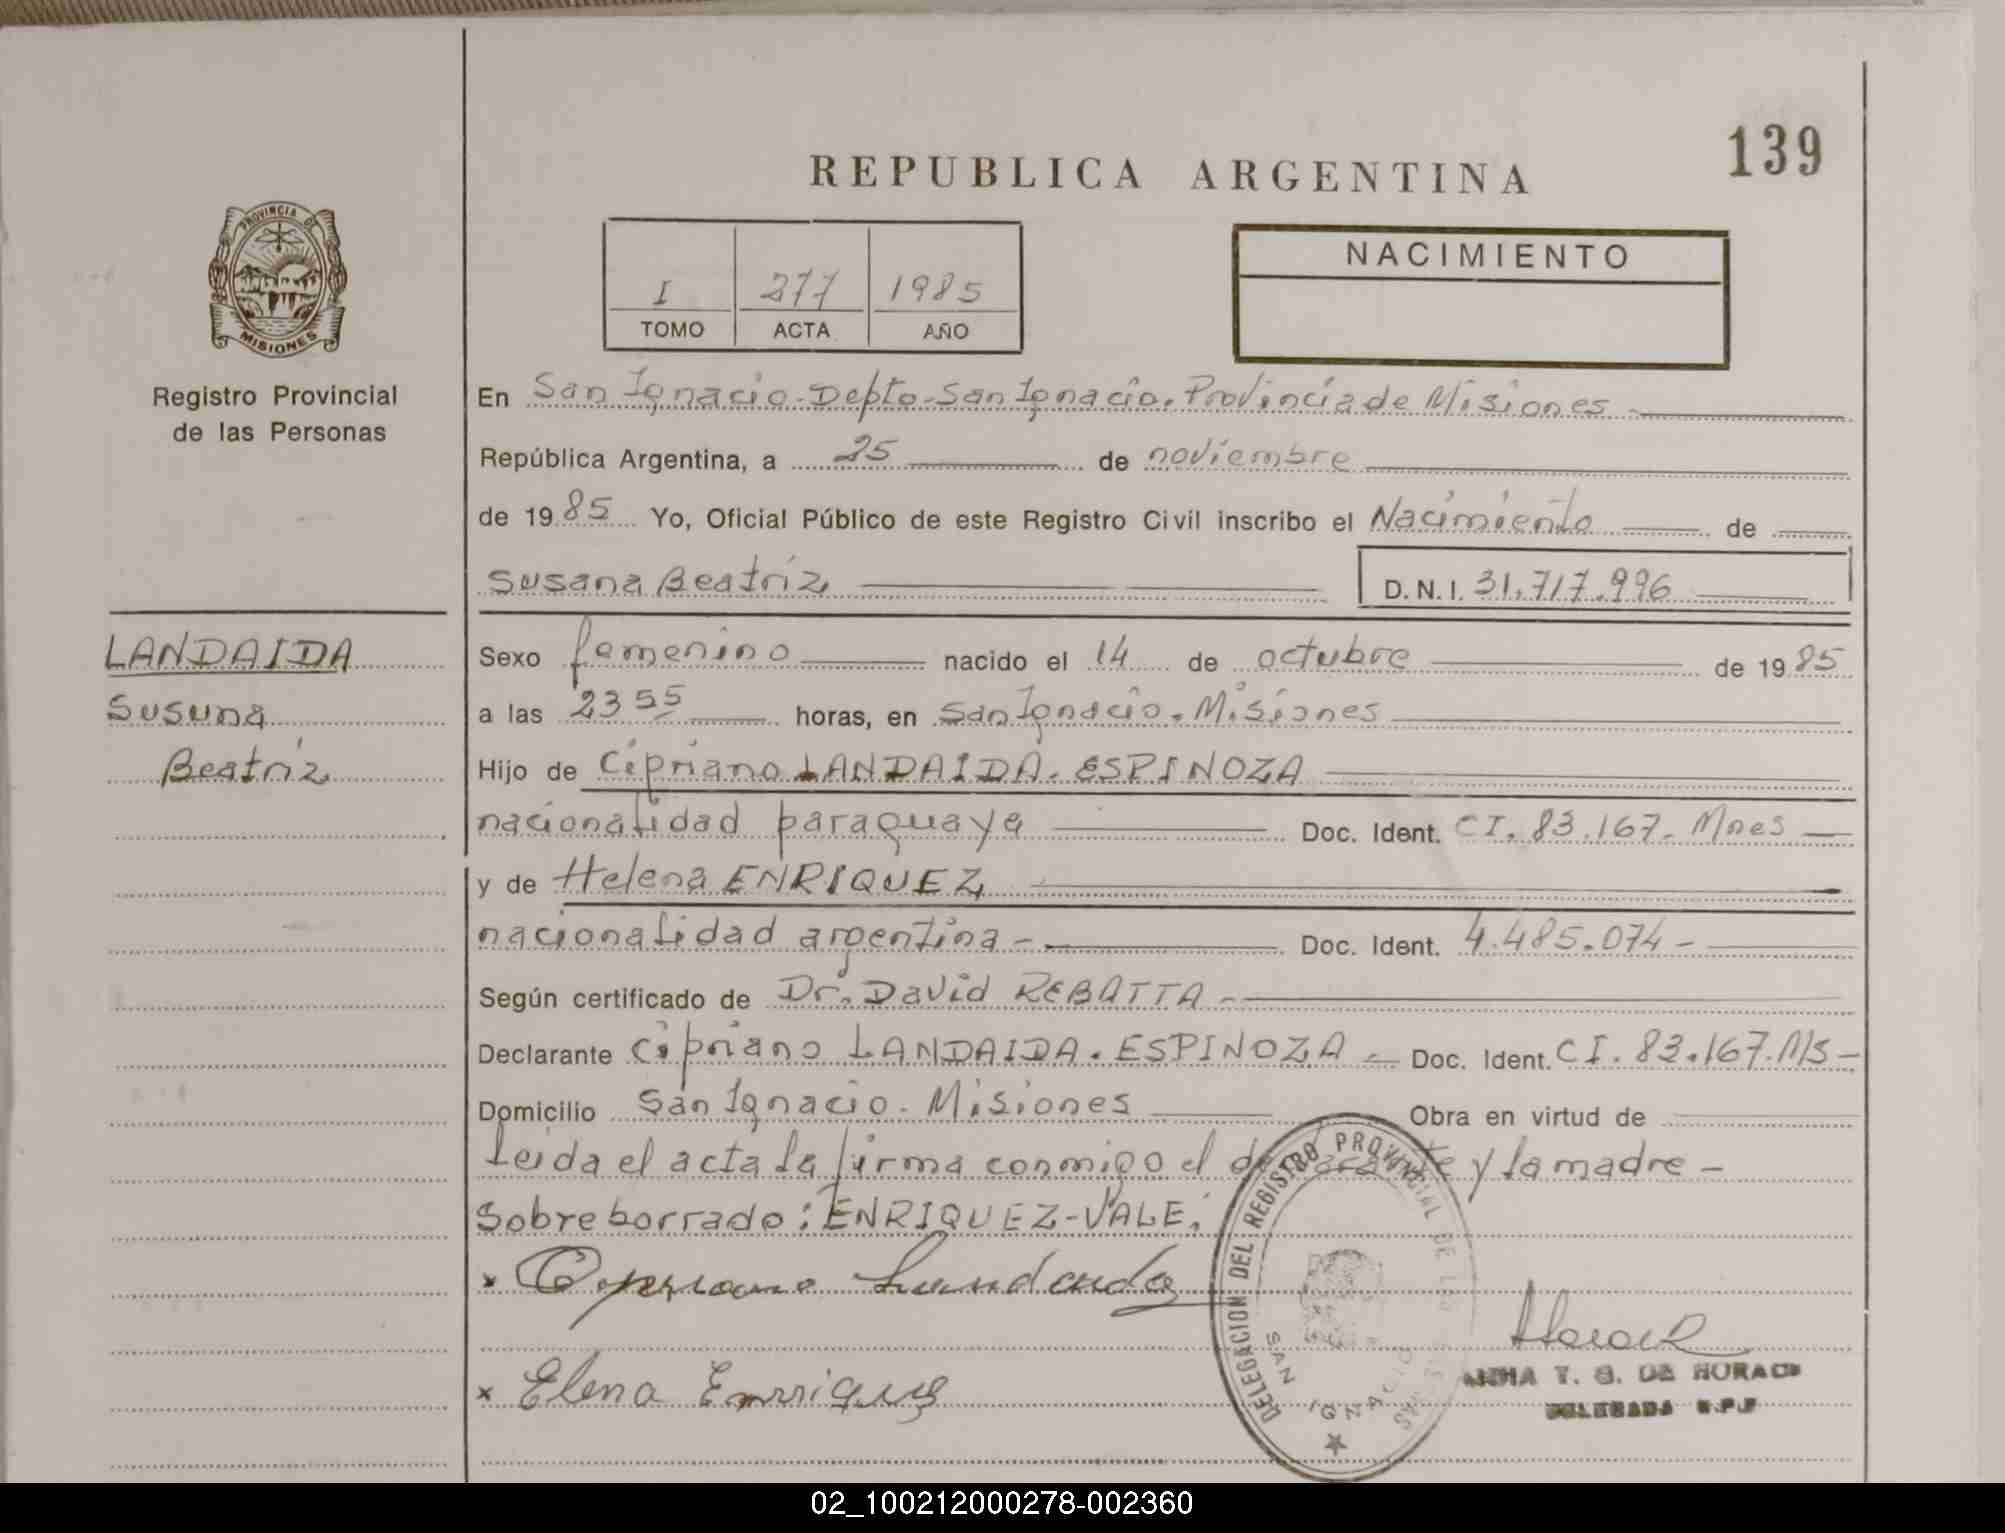 139
REPUBLICA ARGENTINA
PROVINCIA DE
MISIONES
Registro Provincial
de las Personas
I 277 1985
TOMO ACTA AÑO
NACIMIENTO
En San Ignacio-Depto-San Ignacio. Provincia de Misiones-
República Argentina, a 25 de noviembre
de 1985 Yo, Oficial Público de este Registro Civil inscribo el Nacimiento de
Susana Beatriz D.N.I. 31.717.996
LANDAIDA
Susana
Beatriz
Sexo femenino nacido el 14 de octubre de 1985
a las 23 55 horas, en San Ignacio. Misiones
Hijo de Cipriano LANDAIDA. ESPINOZA
nacionalidad paraguaya Doc. Ident. CI. 83.167. Mnes
y de Helena ENRIQUEZ
nacionalidad argentina- Doc. Ident. 4.485.074-
Según certificado de Dr. David REBATTA-
Declarante Cipriano LANDAIDA. ESPINOZA- Doc. Ident. CI. 83.167.M/s-
Domicilio San Ignacio. Misiones Obra en virtud de
Leida el acta la firma conmigo el declarante y la madre-
Sobreborrado: ENRIQUEZ-VALE.
x Cipriano Landaida
x Elena Enrriques
DELEGACION DEL REGISTRO PROVINCIAL DE LAS
SAN IGNACIO
T. G. DE HORACK
DELEGADA R.P.P
02_100212000278-002360